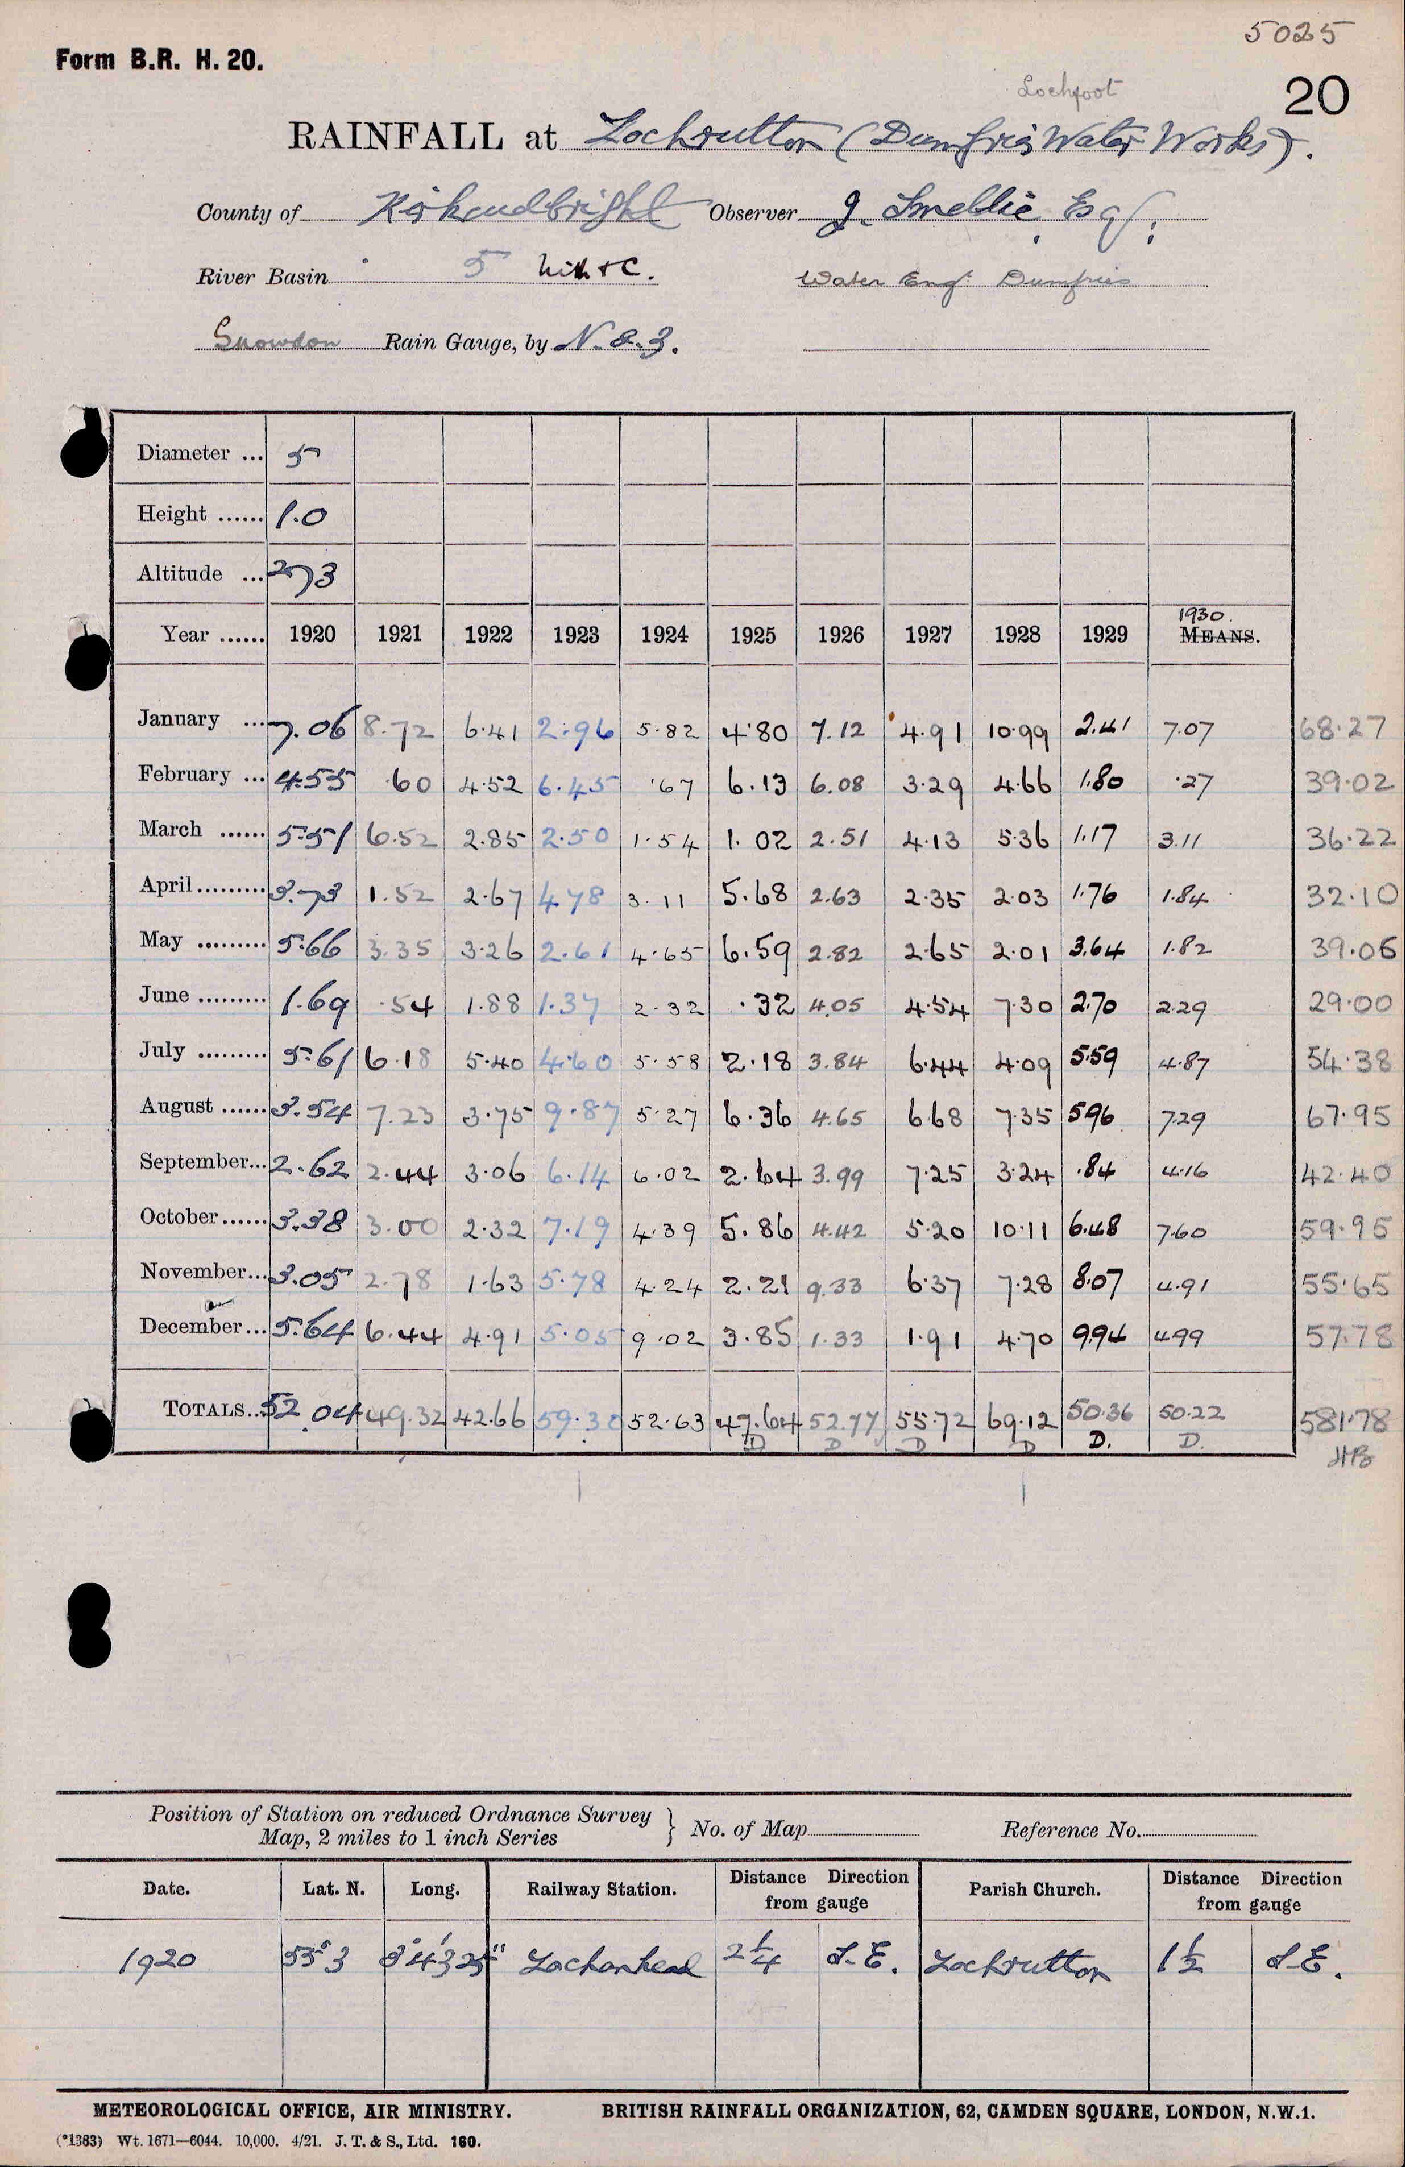 5025
Form B.R. H. 20.
Lochfoot
20
RAINFALL at Lochrutton (Dumfries Water Works).
County of Kirkcudbright Observer J. Smellie, Esq;
River Basin 5 Nith &c. Water Eng. Dumfries
Snowdon Rain Gauge, by N. & Z.
Diameter ... 5
Height ...... 1.0
Altitude ... 273
1930.
Year ...... 1920 1921 1922 1923 1924 1925 1926 1927 1928 1929 MEANS.
January ... 7.06 8.72 6.41 2.96 5.82 4.80 7.12 4.91 10.99 2.41 7.07 68.27
February ... 4.55 .60 4.52 6.45 .67 6.13 6.08 3.29 4.66 1.80 .27 39.02
March ...... 5.51 6.52 2.85 2.50 1.54 1.02 2.51 4.13 5.36 1.17 3.11 36.22
April......... 3.73 1.52 2.67 4.78 3.11 5.68 2.63 2.35 2.03 1.76 1.84 32.10
May ......... 5.66 3.35 3.26 2.61 4.65 6.59 2.82 2.65 2.01 3.64 1.82 39.06
June ......... 1.69 .54 1.88 1.37 2.32 .32 4.05 4.54 7.30 2.70 2.29 29.00
July ......... 5.61 6.18 5.40 4.60 5.58 2.18 3.84 6.44 4.09 5.59 4.87 54.38
August ...... 3.54 7.23 3.75 9.87 5.27 6.36 4.65 6.68 7.35 5.96 7.29 67.95
September... 2.62 2.44 3.06 6.14 6.02 2.64 3.99 7.25 3.24 .84 4.16 42.40
October...... 3.38 3.00 2.32 7.19 4.39 5.86 4.42 5.20 10.11 6.48 7.60 59.95
November... 3.05 2.78 1.63 5.78 4.24 2.21 9.33 6.37 7.28 8.07 4.91 55.65
December... 5.64 6.44 4.91 5.05 9.02 3.85 1.33 1.91 4.70 9.94 4.99 57.78
TOTALS... 52.04 49.32 42.66 59.30 52.63 47.64 52.77 55.72 69.12 50.36 50.22 581.78
D D D D D. D.
Position of Station on reduced Ordnance Survey
Map, 2 miles to 1 inch Series } No. of Map Reference No.
Date. Lat. N. Long. Railway Station. Distance Direction from gauge Parish Church. Distance Direction from gauge
1920 55° 3 3° 43' 25" Lochanhead 2 1/4 S.E. Lochrutton 1 1/2 S.E.
METEOROLOGICAL OFFICE, AIR MINISTRY. BRITISH RAINFALL ORGANIZATION, 62, CAMDEN SQUARE, LONDON, N.W.1.
(*1383) Wt. 1671—6044. 10,000. 4/21. J. T. & S., Ltd. 160.